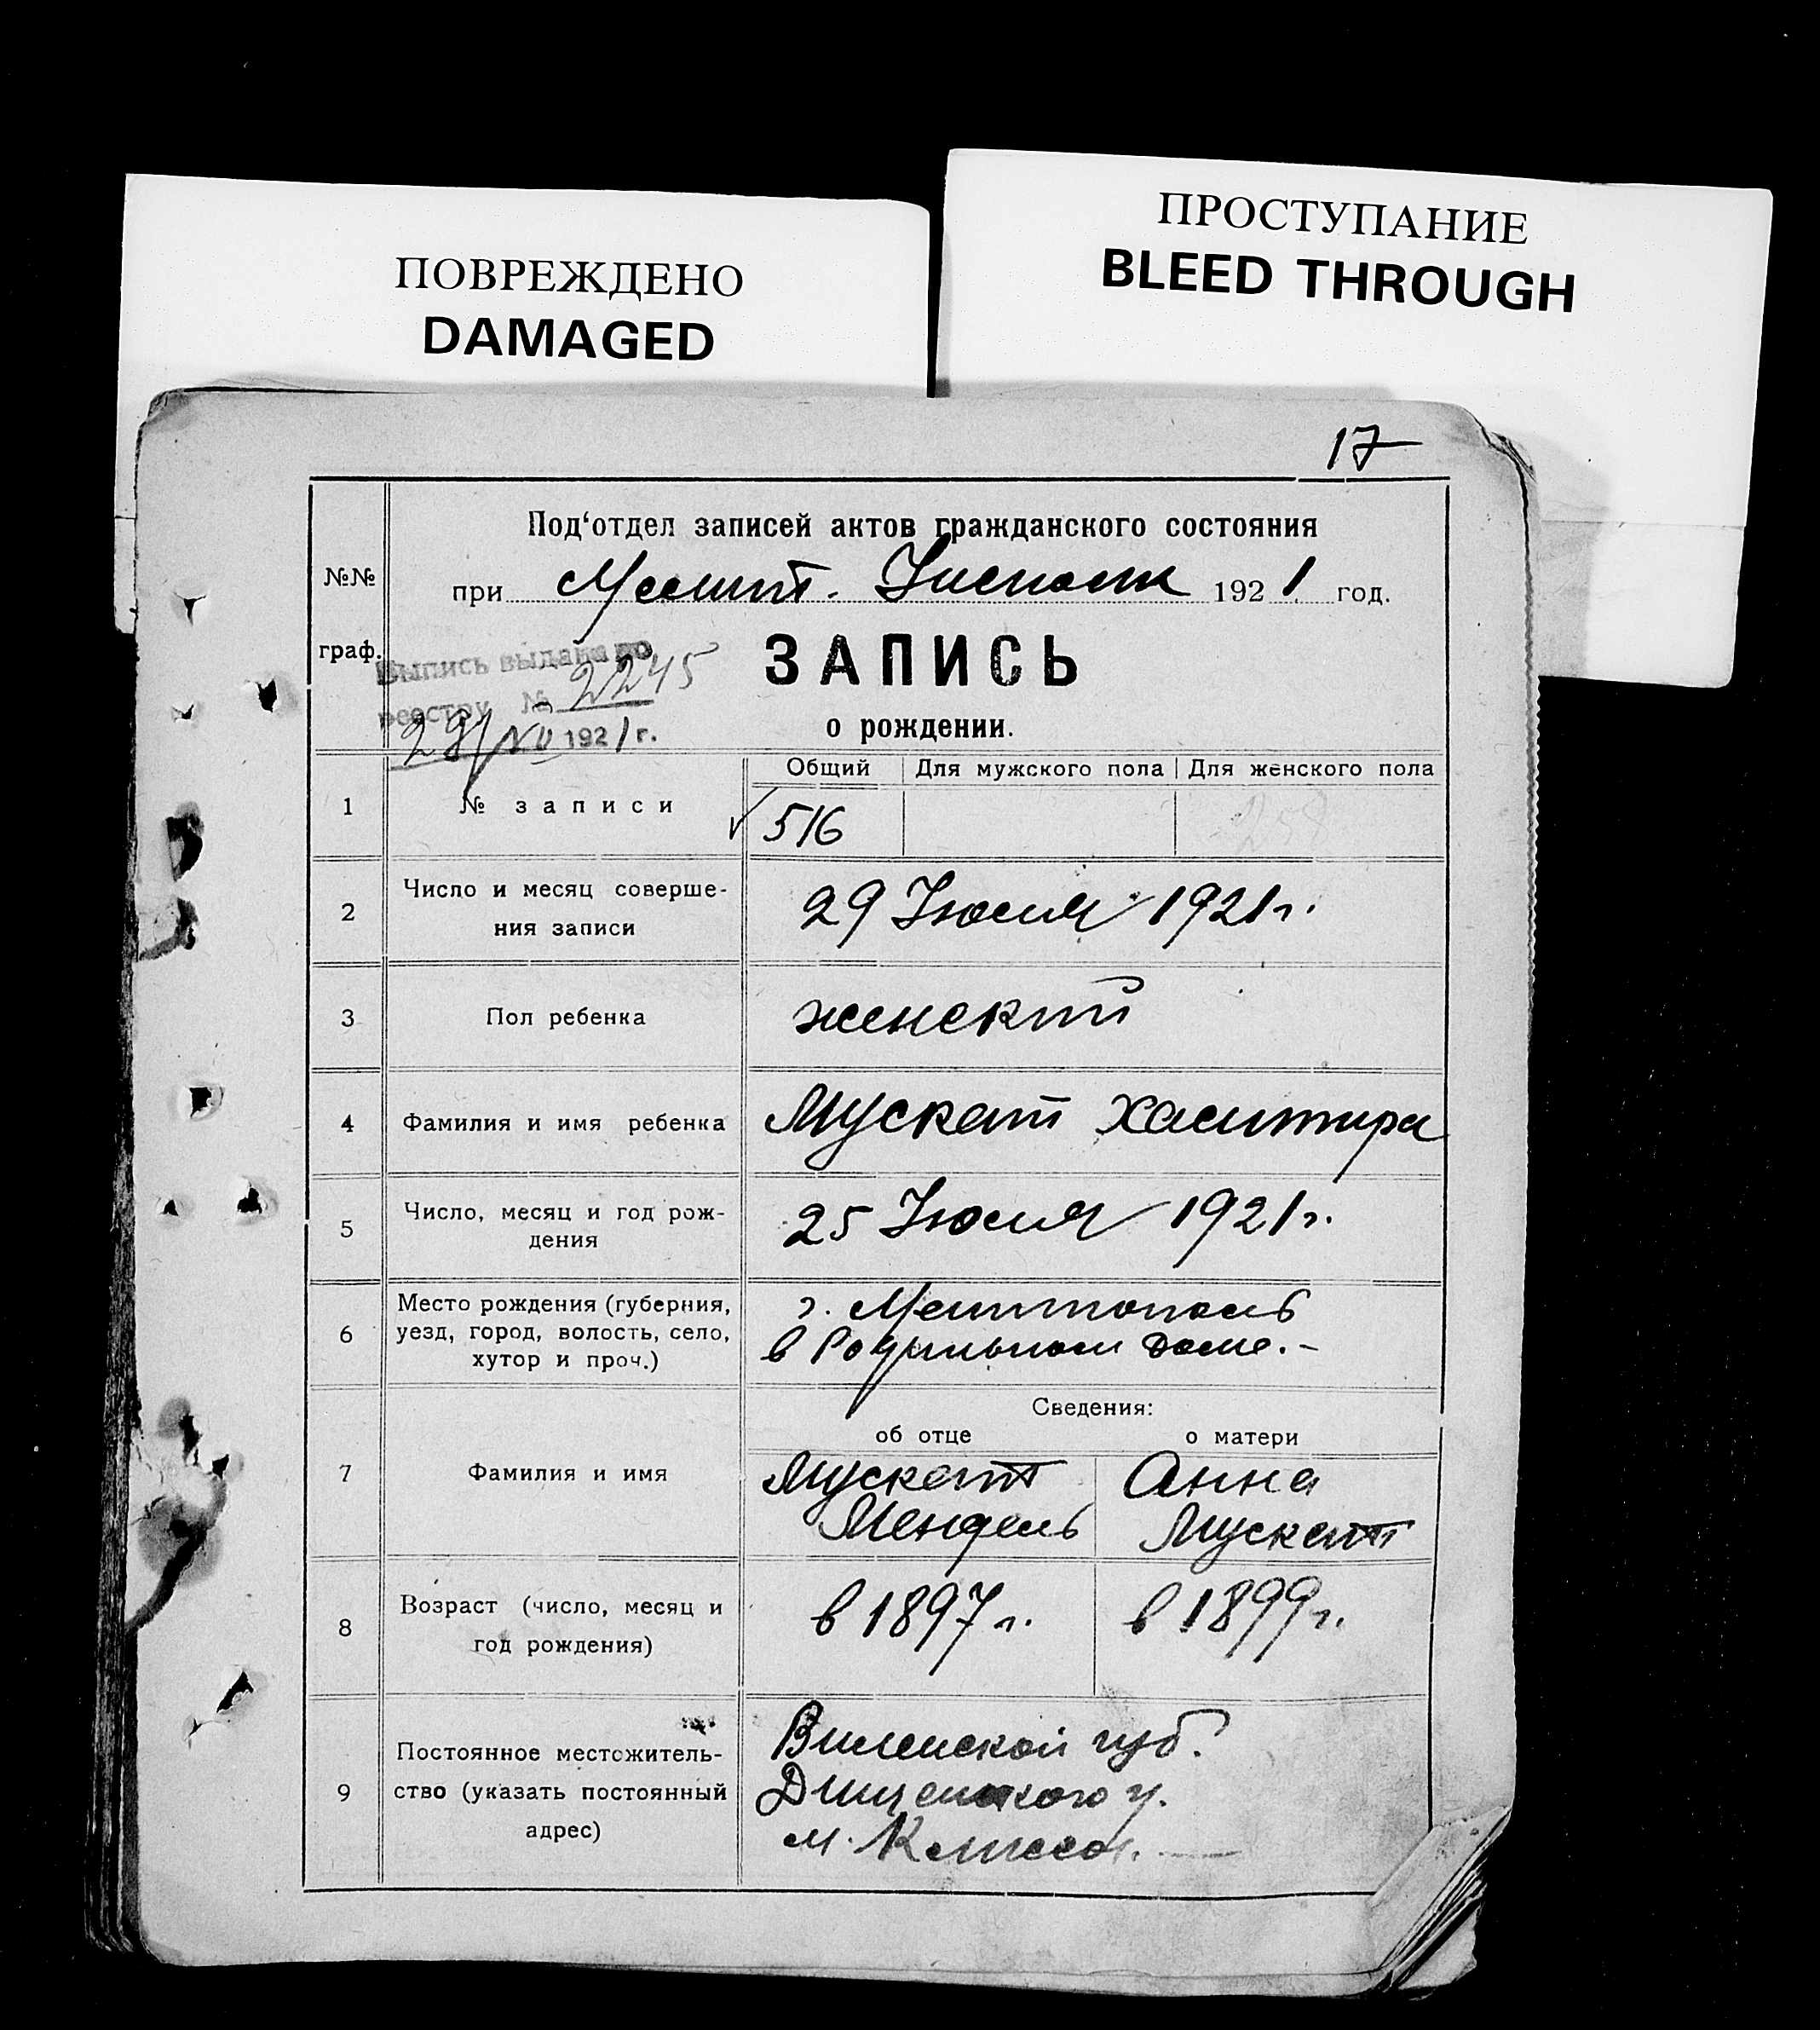 ПОВРЕЖДЕНО
DAMAGED
ПРОСТУПАНИЕ
BLEED THROUGH
17
№№
граф.
Под'отдел записей актов гражданского состояния
при Мелит. Исполк 1921 год.
Выпись выдана по
реестру № 2245
29/VII 1921 г.
ЗАПИСЬ
о рождении.
Общий Для мужского пола Для женского пола
1 № записи 516 258
2 Число и месяц соверше-
ния записи
29 Июля 1921 г.
3 Пол ребенка женский
4 Фамилия и имя ребенка Мускат
5 Число, месяц и год рож-
дения
25 Июля 1921 г.
6 Место рождения (губерния,
уезд, город, волость, село,
хутор и проч.)
г. Мелитополь
в Родильном доме.-
Сведения:
об отце о матери
7 Фамилия и имя
Мускат
Мендель
Анна
Мускат
8 Возраст (число, месяц и
год рождения)
в 1897 г. в 1899 г.
9 Постоянное местожитель-
ство (указать постоянный
адрес)
Виленской губ.
у.
м.